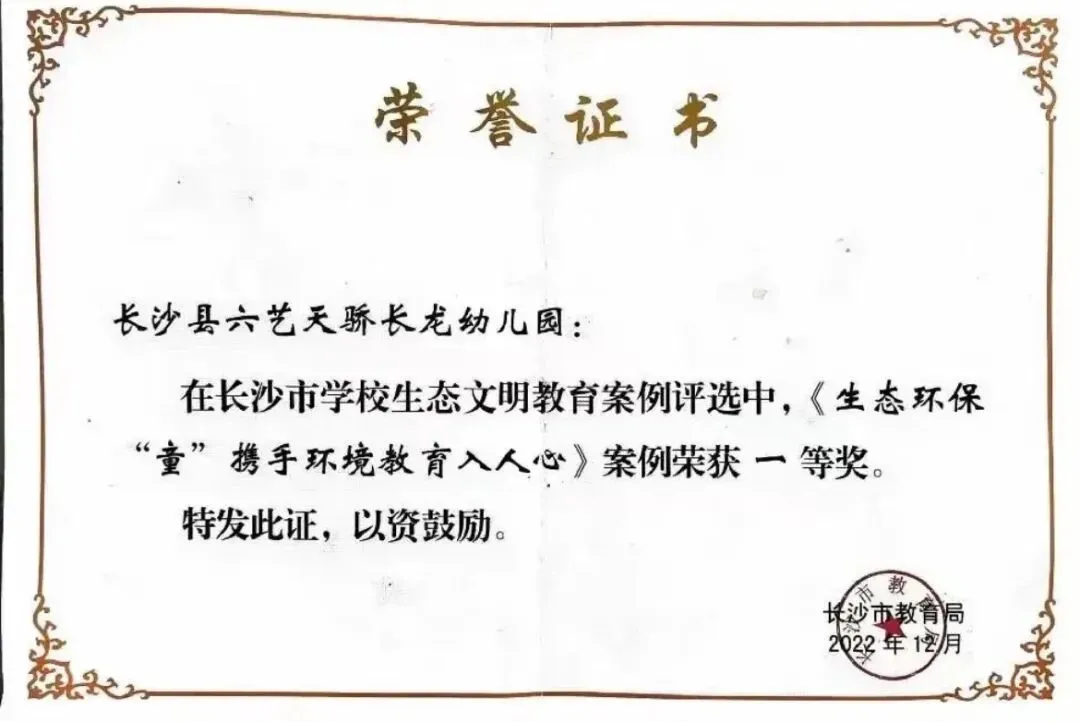 荣誉证书
长沙县六艺天骄长龙幼儿园：
在长沙市学校生态文明教育案例评选中，《生态环保
“童”携手环境教育入人心》案例荣获 一 等奖。
特发此证，以资鼓励。
长沙市教育局
长沙市教育局
2022 年 12 月